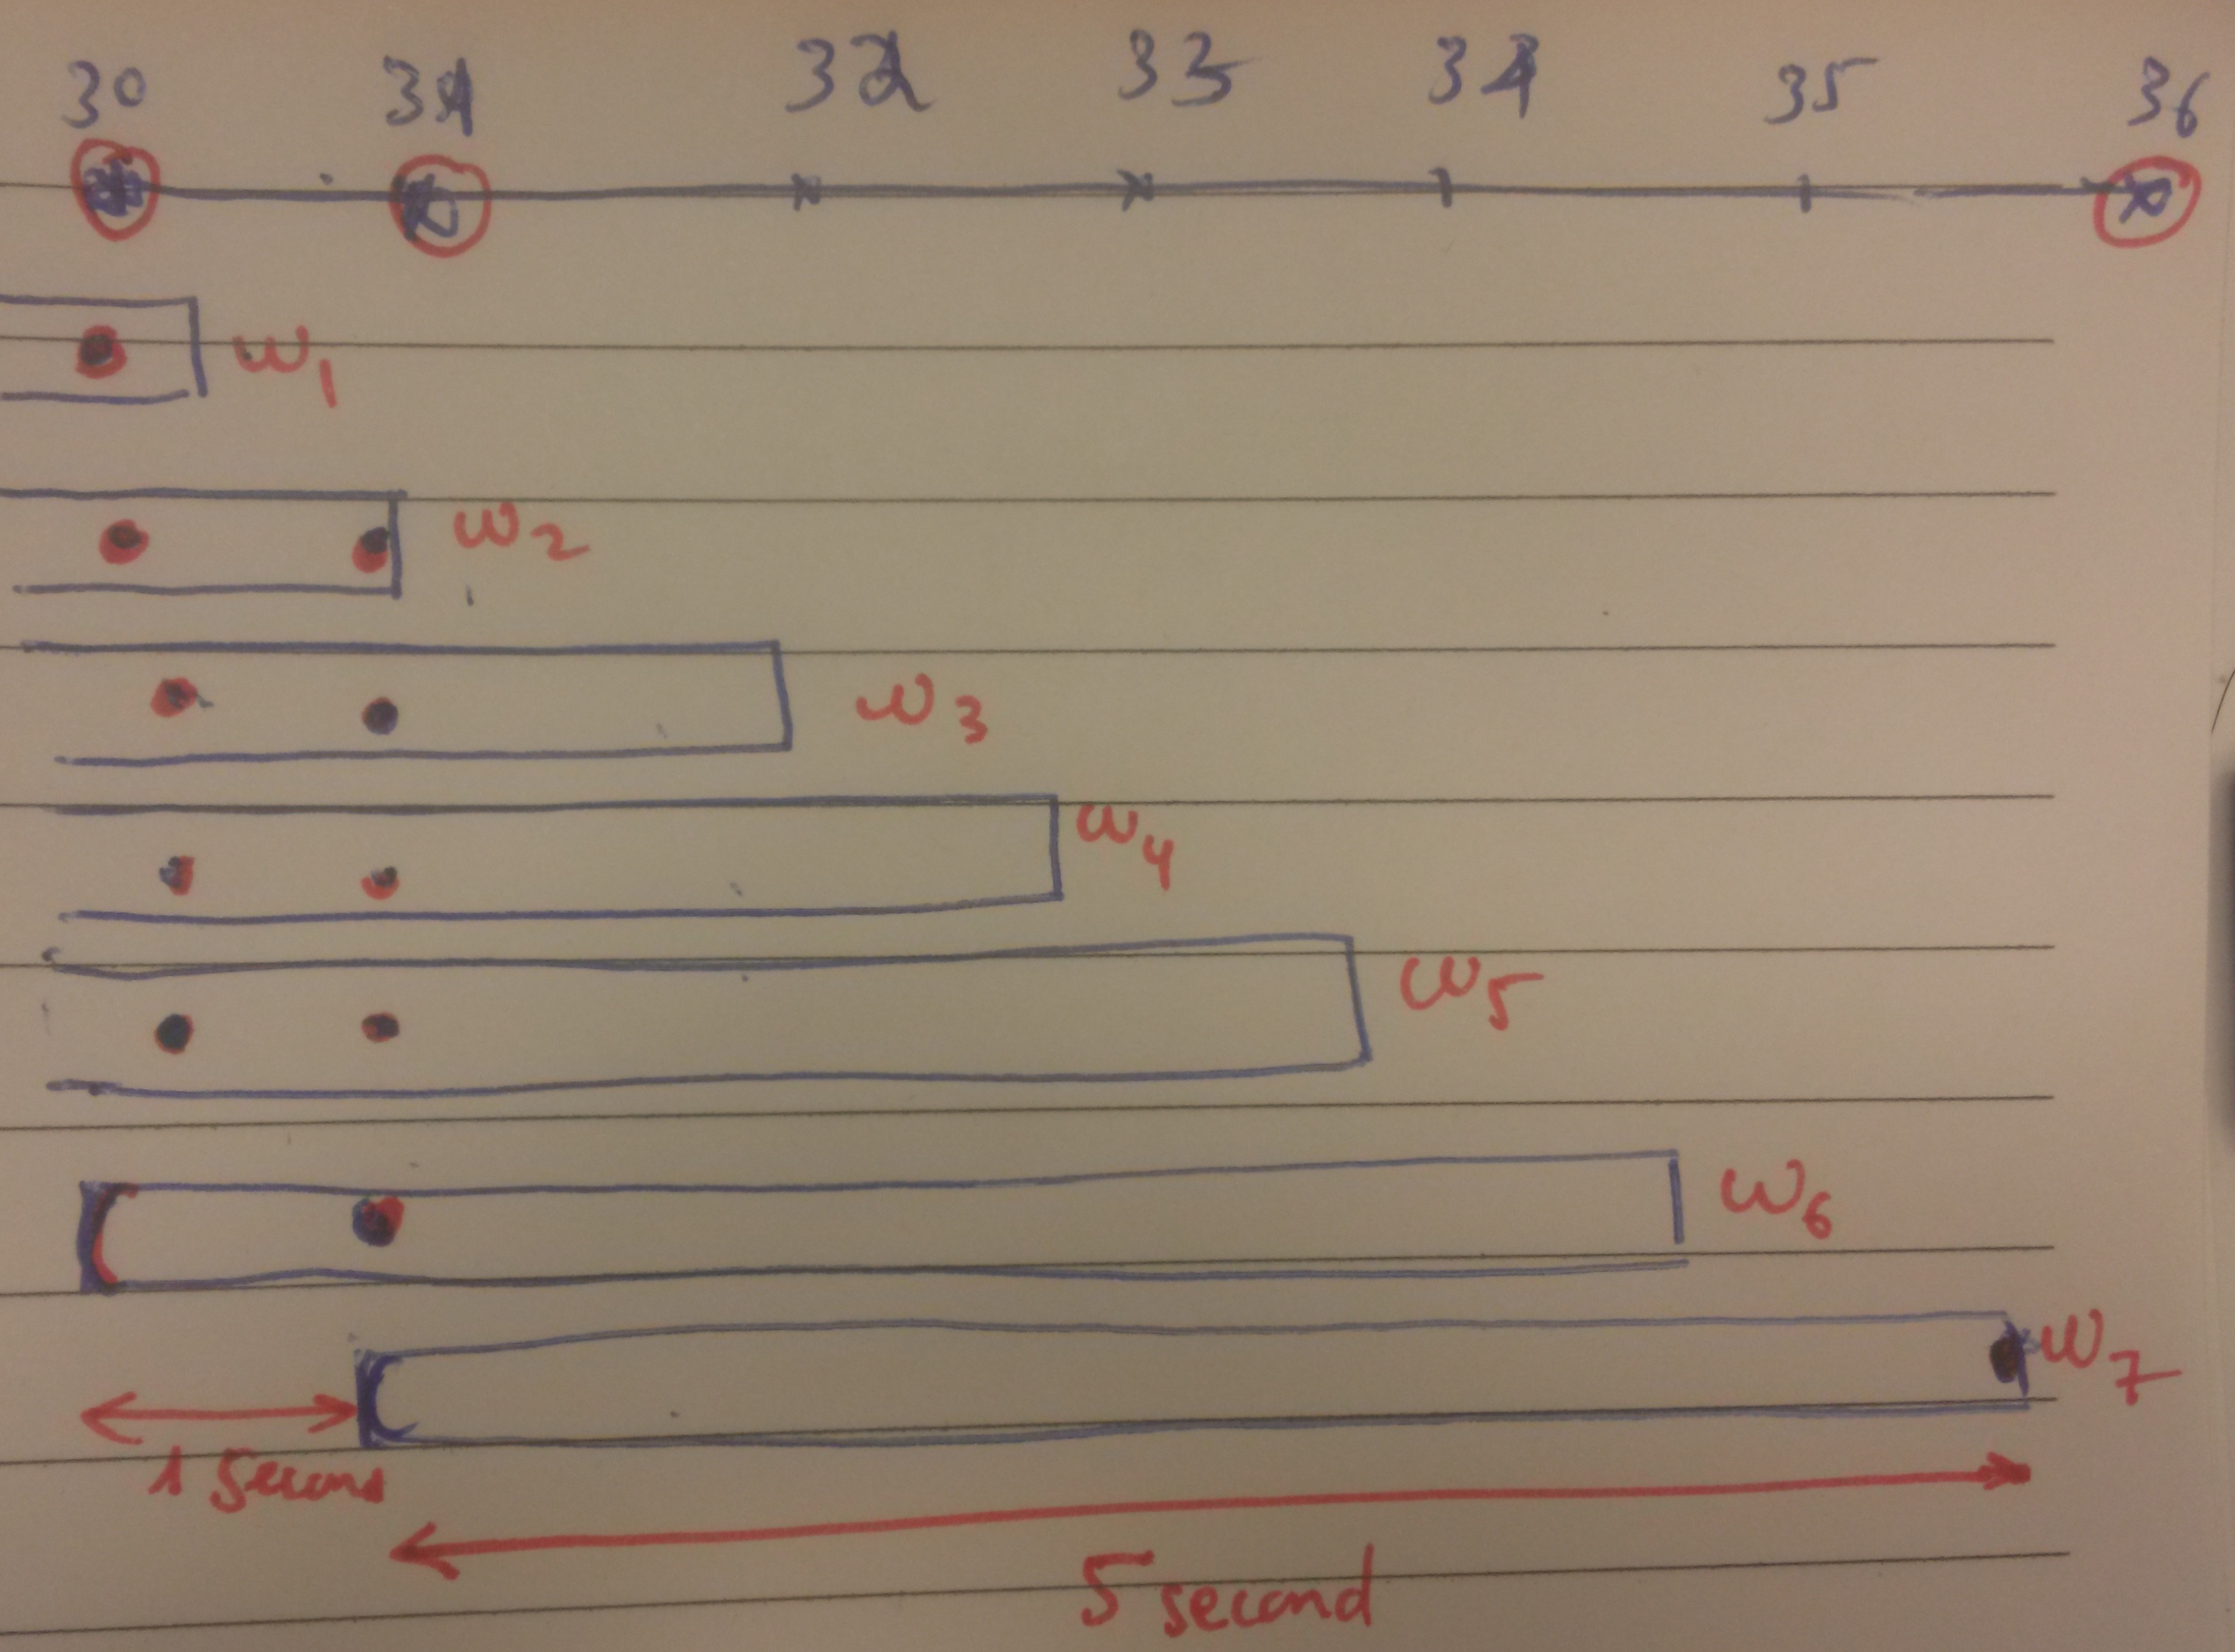 30 31 32 33 34 35 36
w1
w2
w3
w4
w5
w6
w7
1 Second
5 second